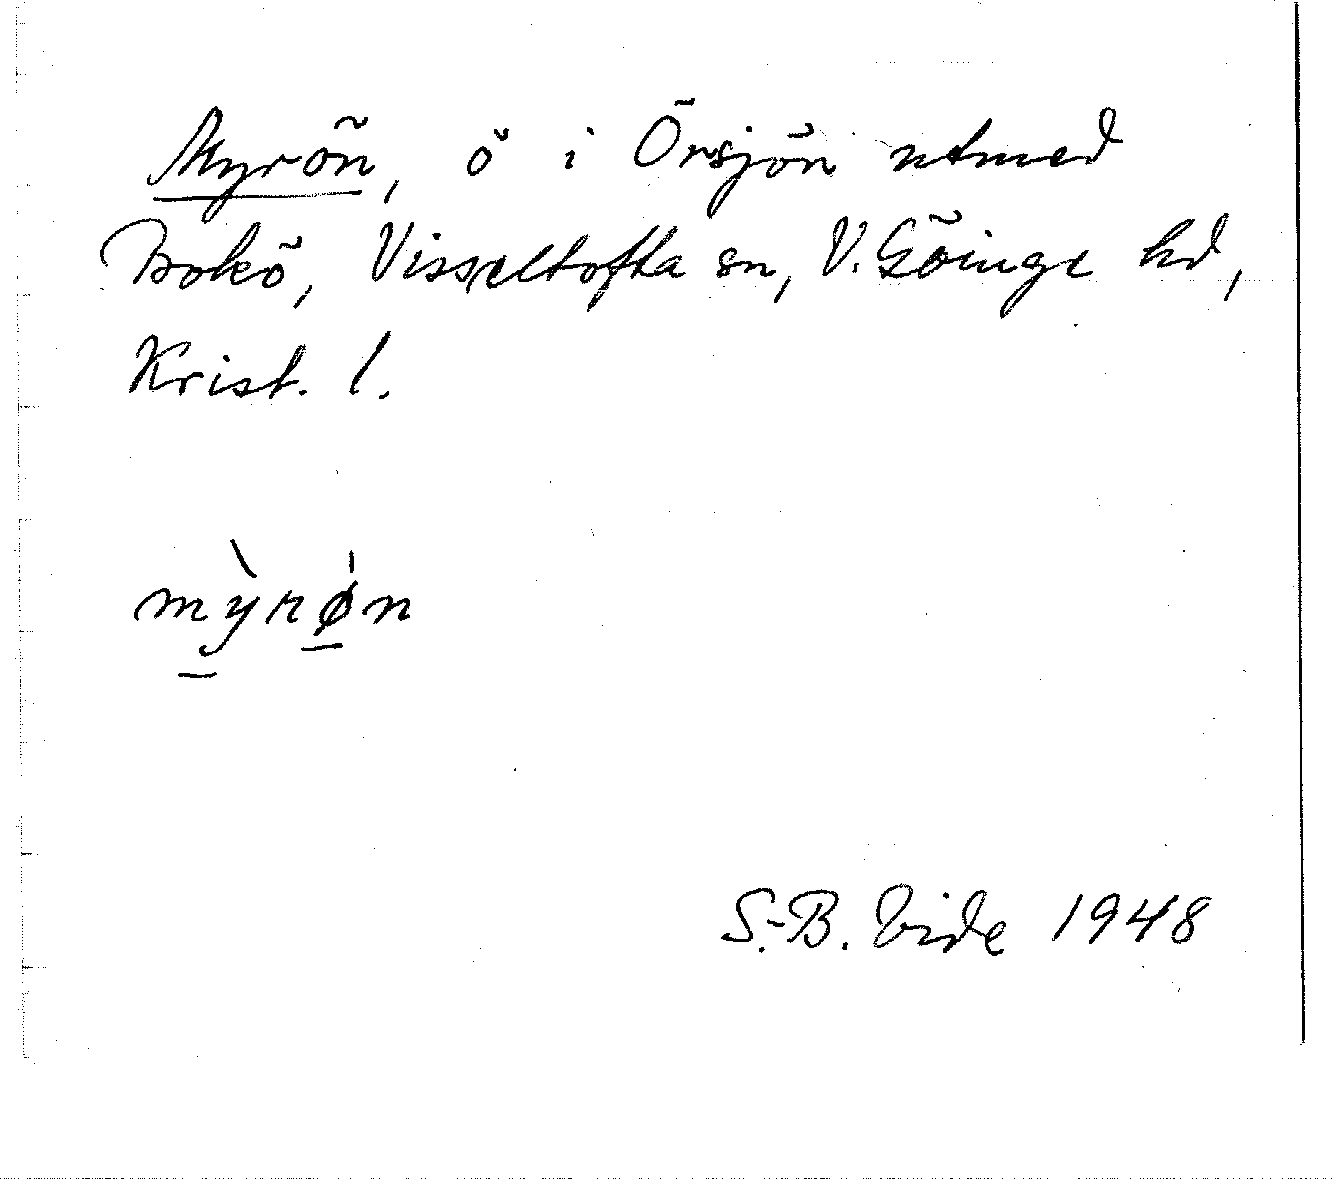 Myrön, ö i Örsjön utmed
Bokö, Visseltofta sn, V. Göinge hd,
Krist. l.
mỳrǿn
S.-B. Vide 1948